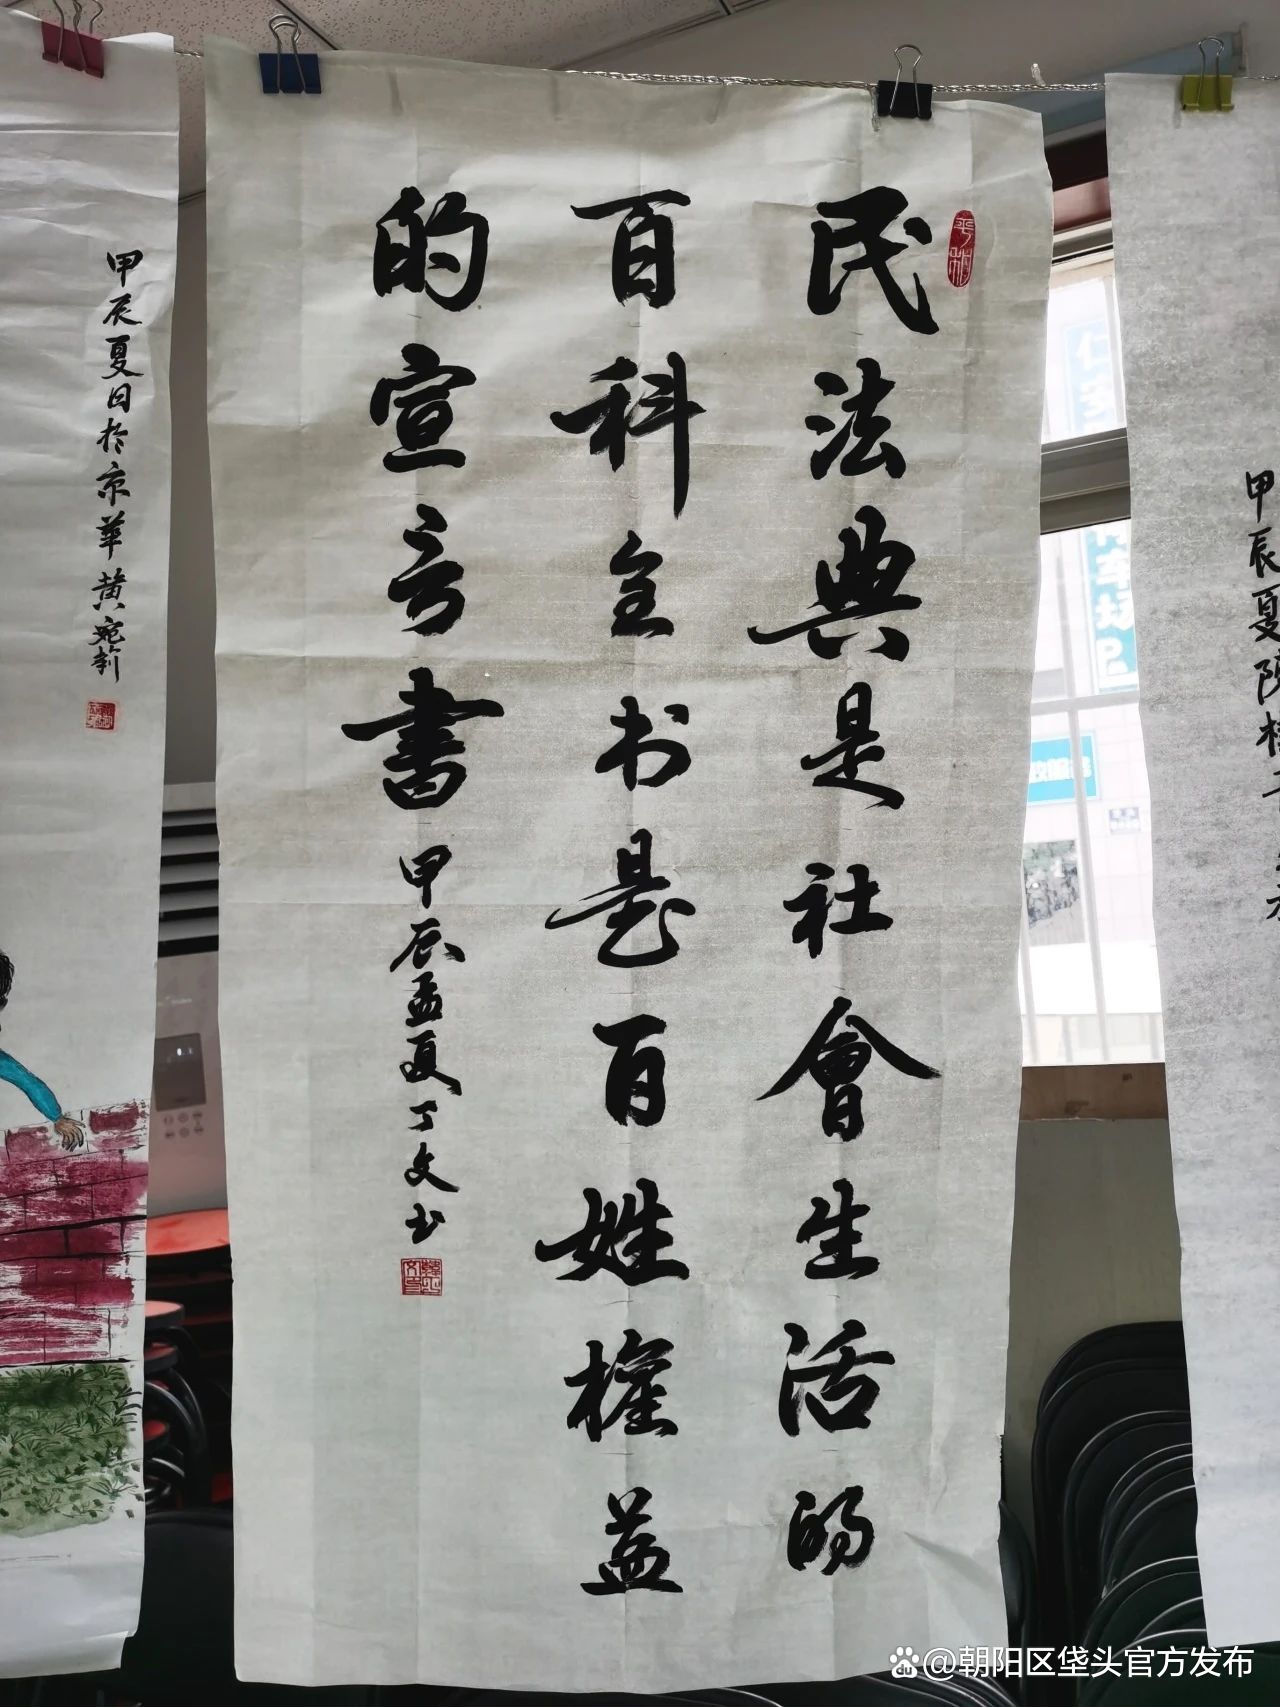 民法典是社會生活的
百科全书是百姓權益
的宣言書
甲辰孟夏丁文书
甲辰夏日於京華黄宛新
甲辰夏陳桂
@朝阳区垡头官方发布